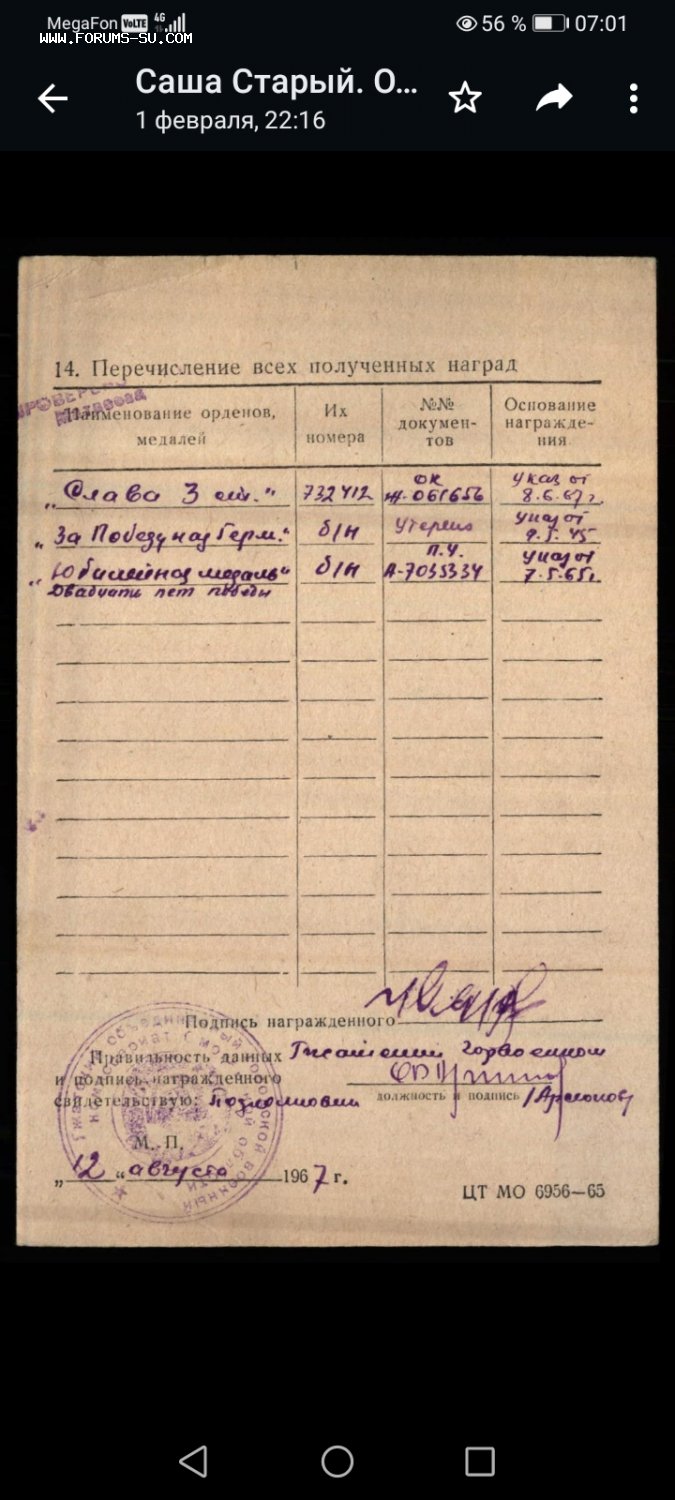 MegaFon VoLTE 4G 56 % 07:01
www.FORUMS-SU.COM
Саша Старый. О...
1 февраля, 22:16
14. Перечисление всех полученных наград
ПРОВЕРЕНО
Наименование орденов, медалей
Их номера
№№ документов
Основание награжде-
ния
„Слава 3 ст." 732412 ОК Ж-061656 Указ от 8.6.67 г.
„За Победу над Герм." б/н Утеряно Указ от 9.5.45
„Юбилейная медаль" б/н П.У. А-7035334 Указ от 7.5.65г.
Двадцать лет победы
Подпись награжденного
Правильность данных Гжатский горвоенком
и подпись награжденного
свидетельствую: подполковник должность и подпись
М. П.
„12" августа 1967 г.
ЦТ МО 6956—65